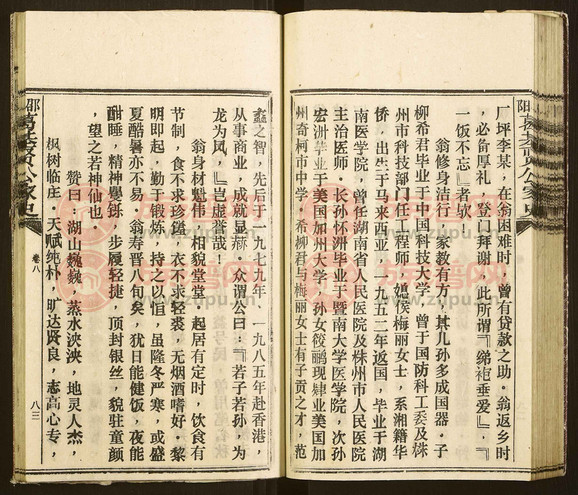 厂坪李某，在翁困难时，曾有贷款之助。翁返乡时
，必备厚礼，登门拜谢，此所谓『绨袍垂爱』，『
一饭不忘』者欤！
翁修身洁行，家教有方，其儿孙多成国器。子
柳希君毕业于中国科技大学，曾于国防科工委及株
州市科技部门任工程师，媳侯梅丽女士，系湘籍华
侨，出生于马来西亚，一九五二年返国，毕业于湖
南医学院，曾任湖南省人民医院及株州市人民医院
主治医师。长孙怀洲毕业于暨南大学医学院，次孙
宏洲毕业于美国加州大学，孙女筱鹂现肄业美国加
州奇柯市中学，希柳君与梅丽女士有子贡之才，范
蠡之智，先后于一九七九年、一九八五年赴香港，
从事商业，成就显赫。众谓公曰：『若子若孙，为
龙为凤，』岂虚誉哉！
翁身材魁伟，相貌堂堂，起居有定时，饮食有
节制，食不求珍馐，衣不求轻裘，无烟酒嗜好。黎
明即起，勤于锻炼，持之以恒，虽隆冬严寒，或盛
夏酷暑亦不易。翁寿晋八旬矣，犹日能健饭，夜能
酣睡，精神矍铄，步履轻捷，顶封银丝，貌驻童颜
，望之若神仙也。
赞曰：湖山巍巍，蒸水泱泱，地灵人杰，
枫树临庄。天赋纯朴，旷达贤良，志高心专，
卷八
八三